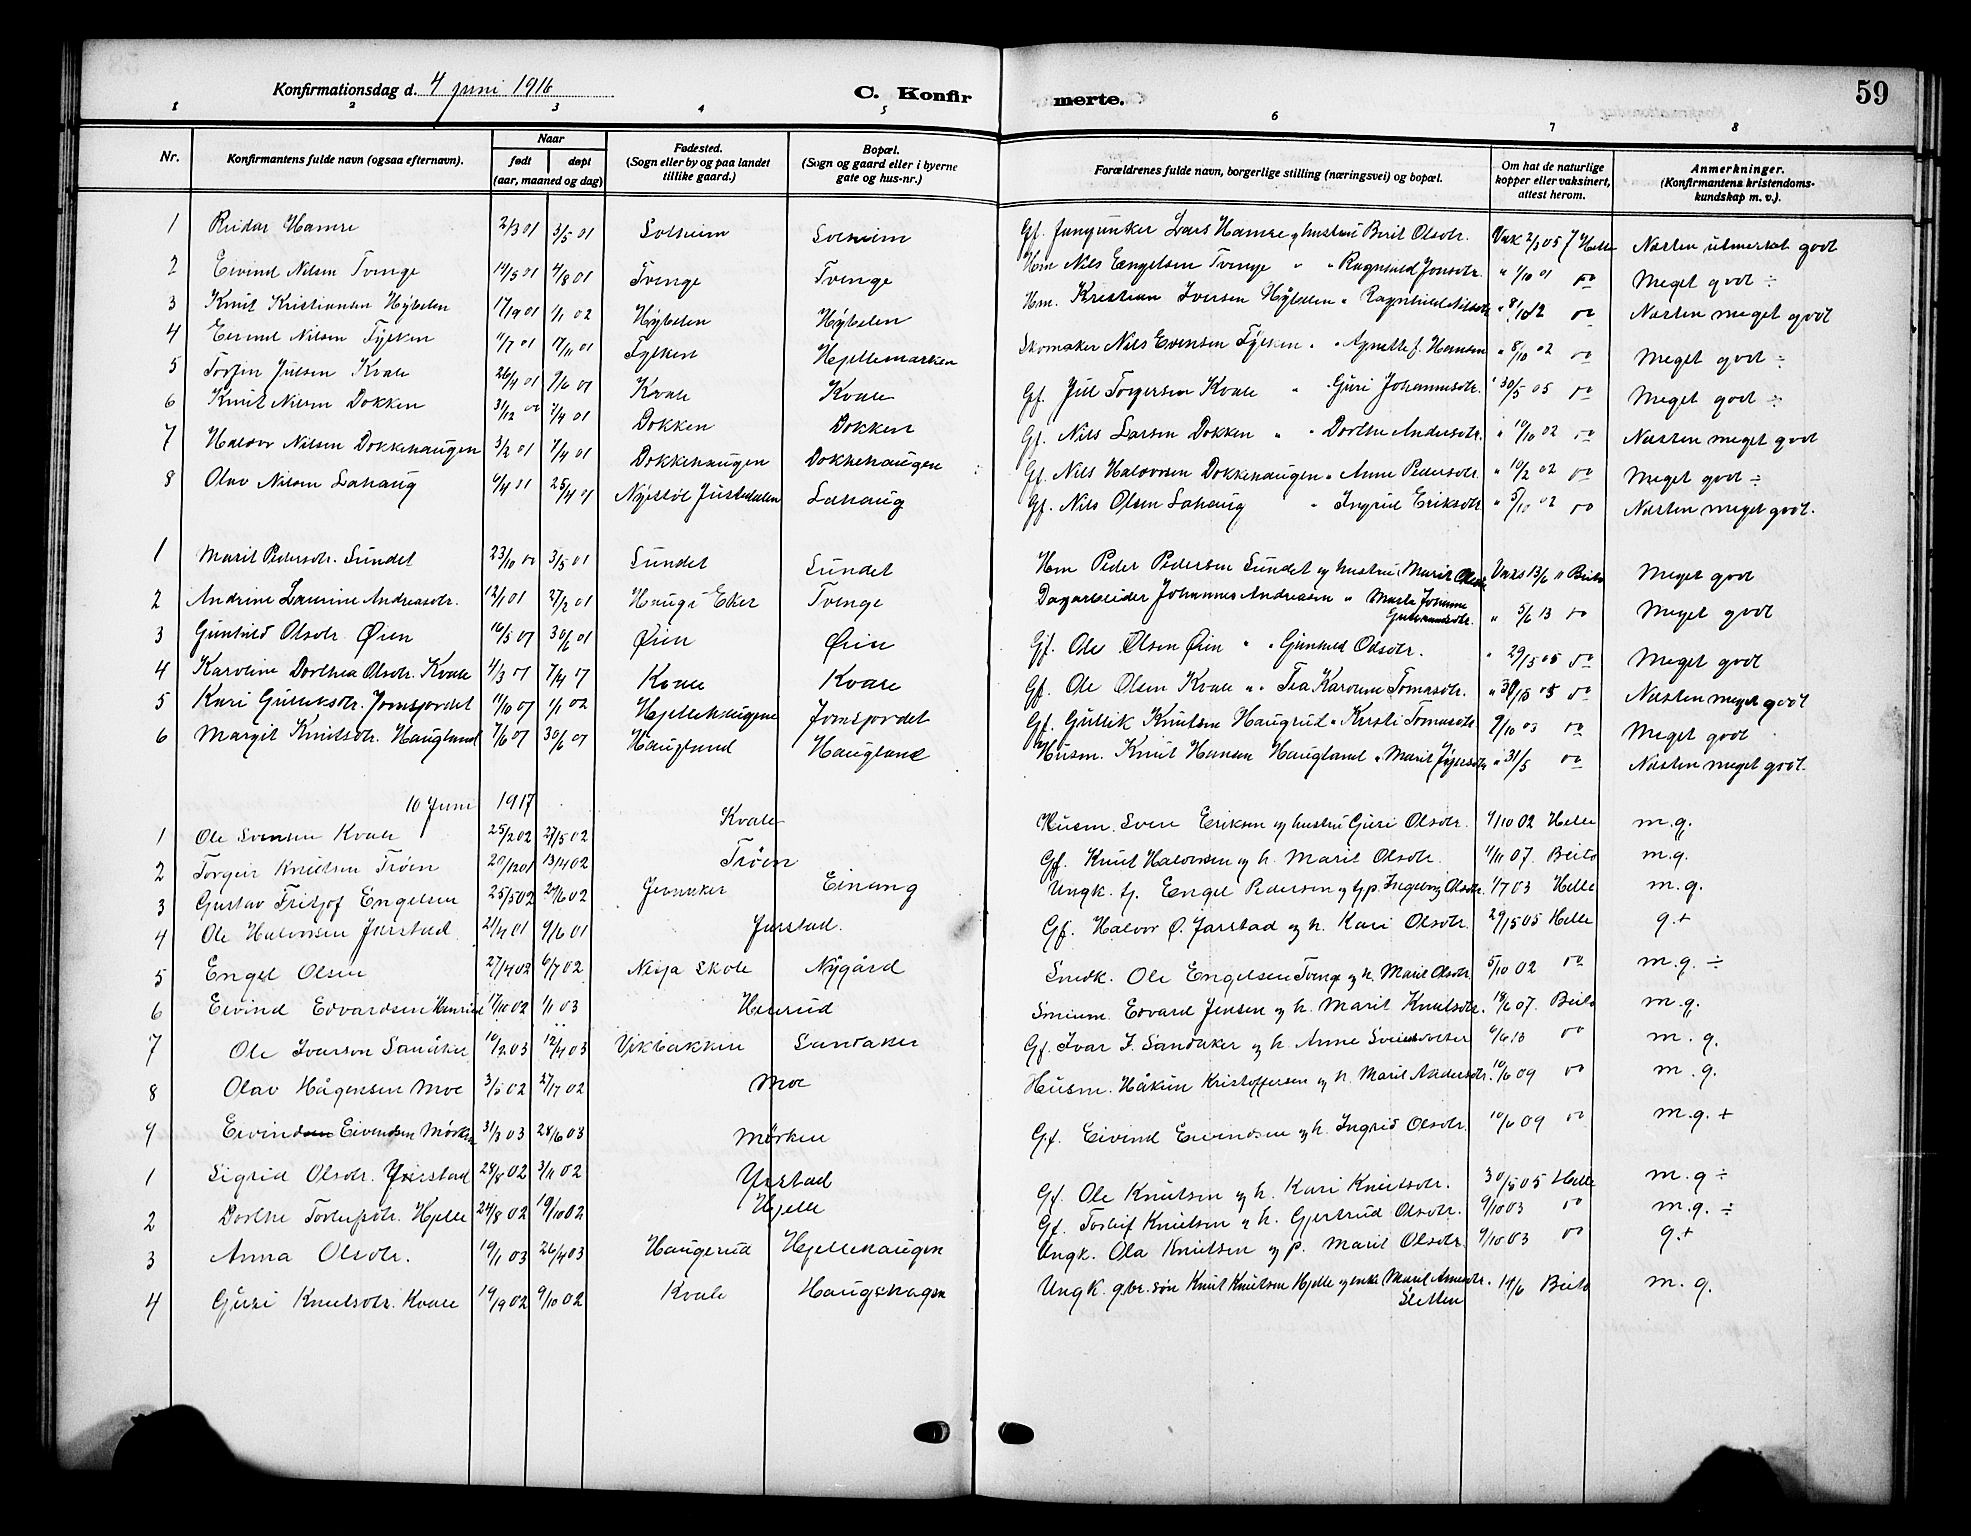 Konfirmationsdag d. 4 juni 1916 C. Konfirmerte. 59
1 2 3 4 5 6 7 8
Nr. Konfirmantens fulde navn (ogsaa efternavn). Naar født døpt (aar, maaned og dag) Fødested. (Sogn eller by og paa landet tillike gaard.) Bopæl. (Sogn og gaard eller i byerne gate og hus-nr.) Forældrenes fulde navn, borgerlige stilling (næringsvei) og bopæl. Om hat de naturlige kopper eller vaksinert, attest herom. Anmerkninger. (Konfirmantens kristendoms-kundskap m. v.).
1 Reidar Hamre 2/3 01 3/5 01 Solheim Solheim Gf. Lars Hamre og hustru Berit Olsdtr. Vak 2/3 05 Helle Næsten utmerket godt
2 Eivind Nilsen Tvenge 14/5 01 4/8 01 Tvenge Tvenge Hm Nils Engelsen Tvenge " " Ragnhild Jonsdtr. Meget godt ÷
3 Knut Kristiansen Hýbelen 1/1 02 Hýbelen Hýbelen Hm. Kristian Iversen Hýbelen " Ragnhild Nilsdtr Næsten meget godt
4 Nilsen Fylken 11/7 01 Fylken Hjellemarken Skomaker Nils Evensen Fylken " " Hansen " 8/10 02 do Meget godt ÷
5 Torfin Julsen Kvale 26/4 01 9/6 01 Kvale Kvale Gf. Jul Torgersen Kvale " Guri Johannesdtr. " 30/5 05 do Meget godt ÷
6 Knut Nilsen Dokken 31/12 00 7/4 01 Dokken Dokken Gf. Nils Larsen Dokken " " Dorthe Andersdtr. " 10/10 02 do Næsten meget godt
7 Halvor Nilsen Dokkehaugen 3/2 01 7/4 01 Dokkehaugen Dokkehaugen Gf. Nils Halvorsen Dokkehaugen " Anne Pedersdtr " 10/2 02 do Meget godt ÷
8 Olav Nilsen Lahaug Nyestøl Justedalen Lahaug Gf. Nils Olsen Lahaug " Ingrid Eriksdtr " 5/10 02 do Næsten meget godt.
1 Marit Pedersdtr. Sundet 23/10 00 3/5 01 Sundet Sundet Hm Peder Pedersen Sundet og hustru Marit Olsdtr Vaks 13/6 11 Beito Meget godt
2 Andrine Laurine Andreasdtr. 12/1 01 27/2 01 Haugs Eker Tvenge Dagarbeider Johannes Andreasen " Marte Josine " 5/6 13 do Meget godt
3 Gunhild Olsdtr. Øien 16/5 01 30/6 01 Øien Øien Gf. Ole Olsen Øien " " Gunhild Olsdtr. " 29/5 05 do Meget godt
4 Karoline Dorthea Olsdtr. Kvale 4/3 01 7/4 01 Kvale Kvale Gf. Ole Olsen Kvale " " Tea Karoline Tomasdtr. " 30/5 05 do Næsten meget godt
5 Kari Gulliksdtr. Jomsjordet 1/1 02 Hjellehaugene Jomsjordet Gf. Gullik Knutsen Haugrud " Kersti Tomasdtr 9/10 03 do Meget godt
6 Margit Knutsdtr. Haugland 7/6 01 30/6 01 Haugland Haugland Husm. Knut Hansen Haugland " Marit " 31/5 do Næsten meget godt.
10 Juni 1917
1 Ole Svensen Kvale 25/2 02 27/5 02 Kvale Husm. Sven Eriksen og hustru Guri Olsdtr. 9/10 02 Helle m.g.
2 Torgeir Knutsen Trøen 20/12 01 13/4 02 Trøen Gf. Knut Halvorsen og h. Marit Olsdtr. 4/11 07. Beito m.g.
3 Gustav Fritjof Engelsen 25/5 02 Jevnaker Einang Ungk. tj. Engel Pedersen og tjp. Ingeborg Olsdtr. 1/7 03 Helle m.g.
4 Ole Halvorsen Jarstad 21/4 01 9/6 01 Jarstad. Gf. Halvor O. Jarstad og h. Kari Olsdtr. 29/5 05 Helle g.+
5 Engel Olsen 27/4 02 6/7 02 Skole Nýgård Snedk. Ole Engelsen Tvenge og h. Marit Olsdtr 5/10 02 do m.g. ÷
6 Eivind Edvardsen Henrud 17/11 02 1/1 03 Henrud Edvard Jensen og h. Marit Knutsdtr. 18/6 07. Beito m.g.
7 Ole Iverson Sandaker 10/2 03 12/4 03 Vikbakken Sandaker Gf. Ivar I. Sandaker og h. Anne 6/6 13 do m.g.
8 Olav Hågensen Moe 3/5 02 27/7 02 Moe Husm. Håkon Kristoffersen og h. Marit Andersdtr. 10/6 09 do m.g.
9 Eivind Eivendsen Mørken 31/3 03 28/6 03 Mørken Gf. Eivind Eivendsen og h. Ingrid Olsdtr. 10/6 09 do m.g. +
1 Sigrid Olsdtr. Yrstad 28/8 02 3/11 02 Yrstad Gf. Ole Knutsen og h. Kari Knutsdtr. 30/5 05 Helle m.g ÷
2 Dorthe Torleifsdtr. Hjelle 24/8 02 19/10 02 Hjelle Gf. Torleif Knutsen og h. Gjertrud Olsdtr. 9/10 03 do m.g. ÷
3 Anna Olsdtr. 19/1 03 26/4 03 Haugerud Hjellehaugen Ungk. Ola Knutsen og p. Marit Olsdtr. 9/10 03 do g.+
4 Guri Knutsdtr. Kvale 14/9 02 9/10 02 Kvale Haugshagen Ungk. gbr. søn Knut Knutsen Hjelle og enke Marit Arnesdtr. Sletten 14/6 Beito m.g.